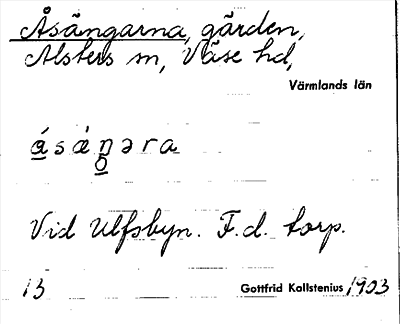 Åsängarna, gården,
Alsters sn, Väse hd,
Värmlands län
ásàŋəra
Vid Ulfsbyn. F.d. torp.
13 Gottfrid Kallstenius 1903